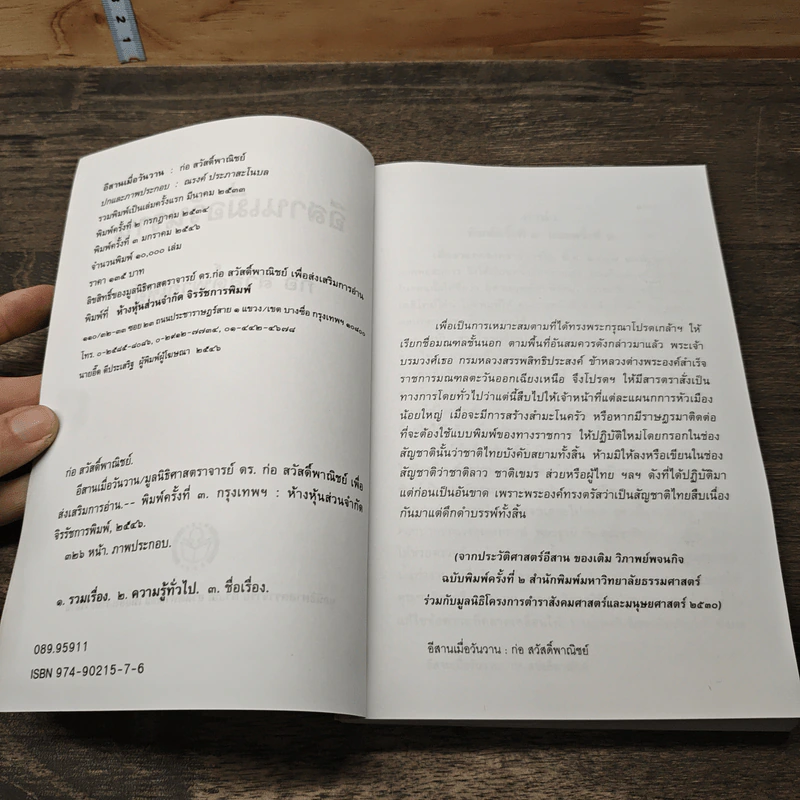 2
1
อีสานเมื่อวันวาน : ก่อ สวัสดิ์พาณิชย์
ปกและภาพประกอบ : ณรงค์ ประภาสะโนบล
รวมพิมพ์เป็นเล่มครั้งแรก มีนาคม ๒๕๓๓
พิมพ์ครั้งที่ ๒ กรกฎาคม ๒๕๓๔
พิมพ์ครั้งที่ ๓ มกราคม ๒๕๔๖
จำนวนพิมพ์ ๑๐,๐๐๐ เล่ม
ราคา ๑๓๕ บาท
ลิขสิทธิ์ของมูลนิธิศาสตราจารย์ ดร.ก่อ สวัสดิ์พาณิชย์ เพื่อส่งเสริมการอ่าน
พิมพ์ที่ ห้างหุ้นส่วนจำกัด จิรรัชการพิมพ์
๑๑๐/๓๒-๓๓ ซอย ๒๓ ถนนประชาราษฎร์สาย ๑ แขวง/เขต บางซื่อ กรุงเทพฯ ๑๐๘๐๐
โทร. ๐-๒๕๘๕-๘๐๔๖, ๐-๒๙๑๒-๗๗๓๔, ๐๑-๔๔๒-๔๖๗๘
นายอี๊ด ดีประเสริฐ ผู้พิมพ์ผู้โฆษณา ๒๕๔๖
ก่อ สวัสดิ์พาณิชย์.
อีสานเมื่อวันวาน/มูลนิธิศาสตราจารย์ ดร. ก่อ สวัสดิ์พาณิชย์ เพื่อ
ส่งเสริมการอ่าน.-- พิมพ์ครั้งที่ ๓. กรุงเทพฯ : ห้างหุ้นส่วนจำกัด
จิรรัชการพิมพ์, ๒๕๔๖.
๓๒๖ หน้า. ภาพประกอบ.
๑. รวมเรื่อง. ๒. ความรู้ทั่วไป. ๓. ชื่อเรื่อง.
089.95911
ISBN 974-90215-7-6
เพื่อเป็นการเหมาะสมตามที่ได้ทรงพระกรุณาโปรดเกล้าฯ ให้
เรียกชื่อมณฑลชั้นนอก ตามพื้นที่อันสมควรดังกล่าวมาแล้ว พระเจ้า
บรมวงศ์เธอ กรมหลวงสรรพสิทธิประสงค์ ข้าหลวงต่างพระองค์สำเร็จ
ราชการมณฑลตะวันออกเฉียงเหนือ จึงโปรดฯ ให้มีสารตราสั่งเป็น
ทางการโดยทั่วไปว่าแต่นี้สืบไปให้เจ้าหน้าที่แต่ละแผนกการหัวเมือง
น้อยใหญ่ เมื่อจะมีการสร้างสำมะโนครัว หรือหากมีราษฎรมาติดต่อ
ที่จะต้องใช้แบบพิมพ์ของทางราชการ ให้ปฏิบัติใหม่โดยกรอกในช่อง
สัญชาตินั้นว่าชาติไทยบังคับสยามทั้งสิ้น ห้ามมิให้ลงหรือเขียนในช่อง
สัญชาติว่าชาติลาว ชาติเขมร ส่วยหรือผู้ไทย ฯลฯ ดังที่ได้ปฏิบัติมา
แต่ก่อนเป็นอันขาด เพราะพระองค์ทรงตรัสว่าเป็นสัญชาติไทยสืบเนื่อง
กันมาแต่ดึกดำบรรพ์ทั้งสิ้น
(จากประวัติศาสตร์อีสาน ของเติม วิภาพย์พจนกิจ
ฉบับพิมพ์ครั้งที่ ๒ สำนักพิมพ์มหาวิทยาลัยธรรมศาสตร์
ร่วมกับมูลนิธิโครงการตำราสังคมศาสตร์และมนุษยศาสตร์ ๒๕๓๐)
อีสานเมื่อวันวาน : ก่อ สวัสดิ์พาณิชย์